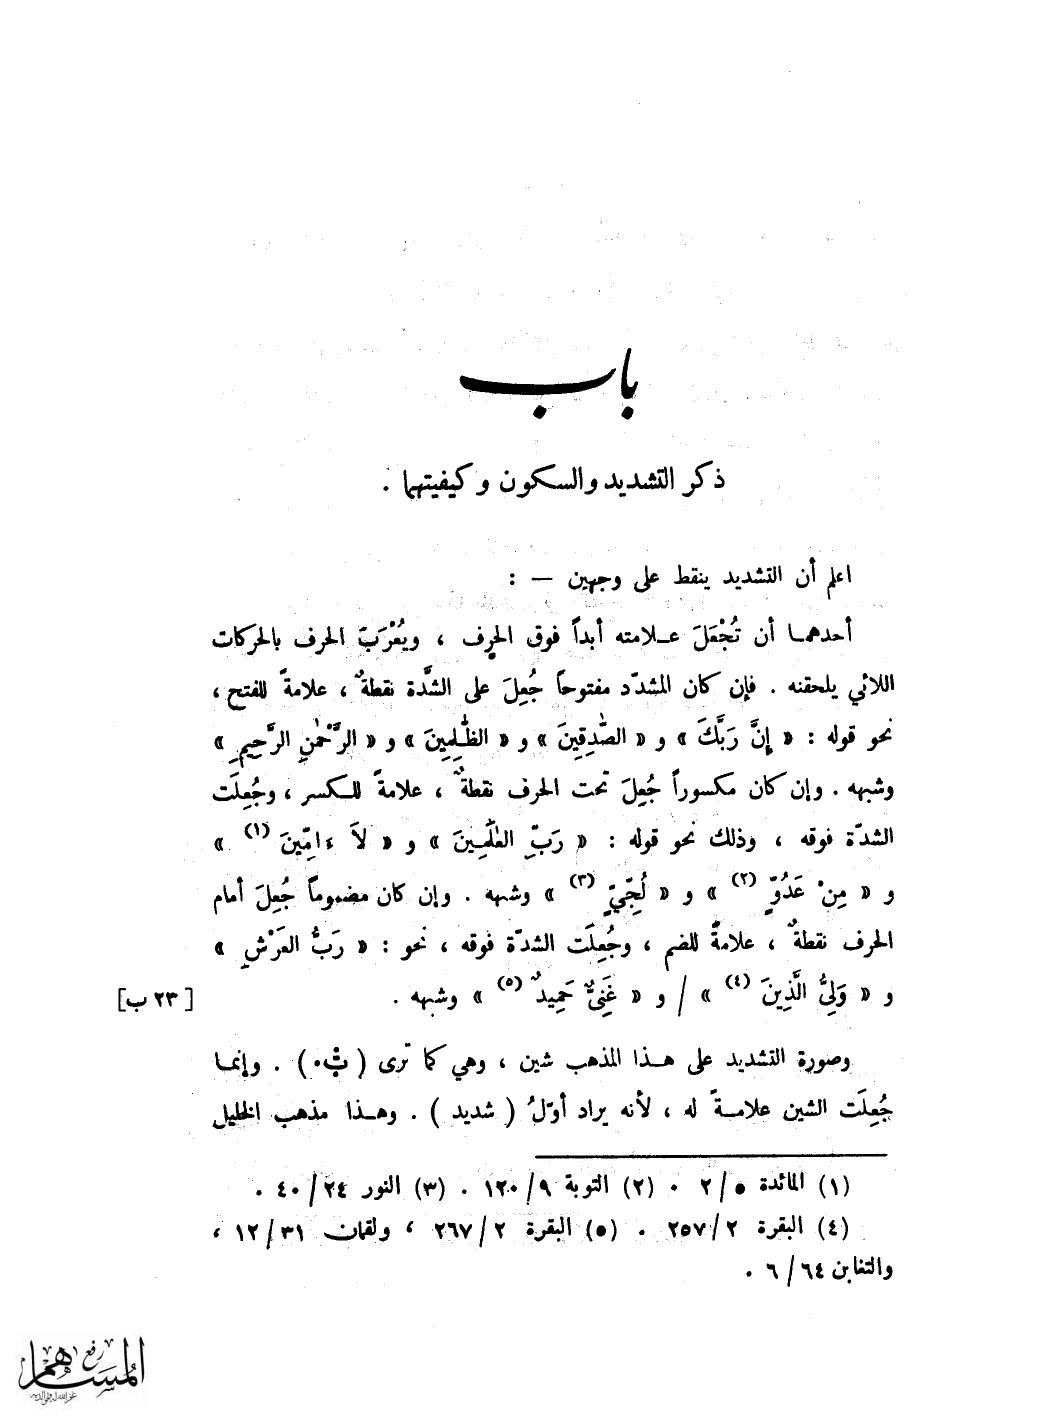 باب
ذكر التشديد والسكون وكيفيتهما .
اعلم أن التشديد ينقط على وجهين — :
أحدهمـا أن تُجْعَلَ عـلامته أبداً فوق الحرف ، ويُعْرَبَ الحرف بالحركات
اللائي يلحقنه . فإن كان المشدّد مفتوحاً جُعِلَ على الشَّدة نقطةٌ ، علامةً للفتح ،
نحو قوله : « إِنَّ رَبَّكَ » و « الصَّٰدِقِينَ » و « الظَّٰلِمِينَ » و « الرَّحْمٰنِ الرَّحِيمِ »
وشبهه . وإن كان مكسوراً جُعِلَ تحت الحرف نقطةٌ ، علامةً للـكسر ، وجُعِلَت
الشدّة فوقه ، وذلك نحو قوله : « رَبِّ العٰلَمِـينَ » و « لاَ ءَامِّينَ (١) »
و « مِنْ عَدُوٍّ (٢) » و « لُجِّيٍّ (٣) » وشبهه . وإن كان مضموماً جُعِلَ أمام
الحرف نقطةٌ ، علامةً للضم ، وجُعِلَت الشدّة فوقه ، نحو : « رَبُّ العَرْشِ »
و « وَلِيُّ الَّذِينَ (٤) » / و « غَنِيٌّ حَمِيدٌ (٥) » وشبهه . [ ٢٣ ب]
وصورة التشديد على هـذا المذهب شين ، وهي كما ترى ( ) . وإنمـا
جُعِلَت الشين علامـةً له ، لأنه يراد أوّلُ ( شديد ) . وهـذا مذهب الخليل
(١) المائدة ٢/٥ . (٢) التوبة ١٢٠/٩ . (٣) النور ٤٠/٢٤ .
(٤) البقرة ٢٥٧/٢ . (٥) البقرة ٢٦٧/٢ ، ولقمان ١٢/٣١ ،
والتغابن ٦/٦٤ .
رفع
المساهم